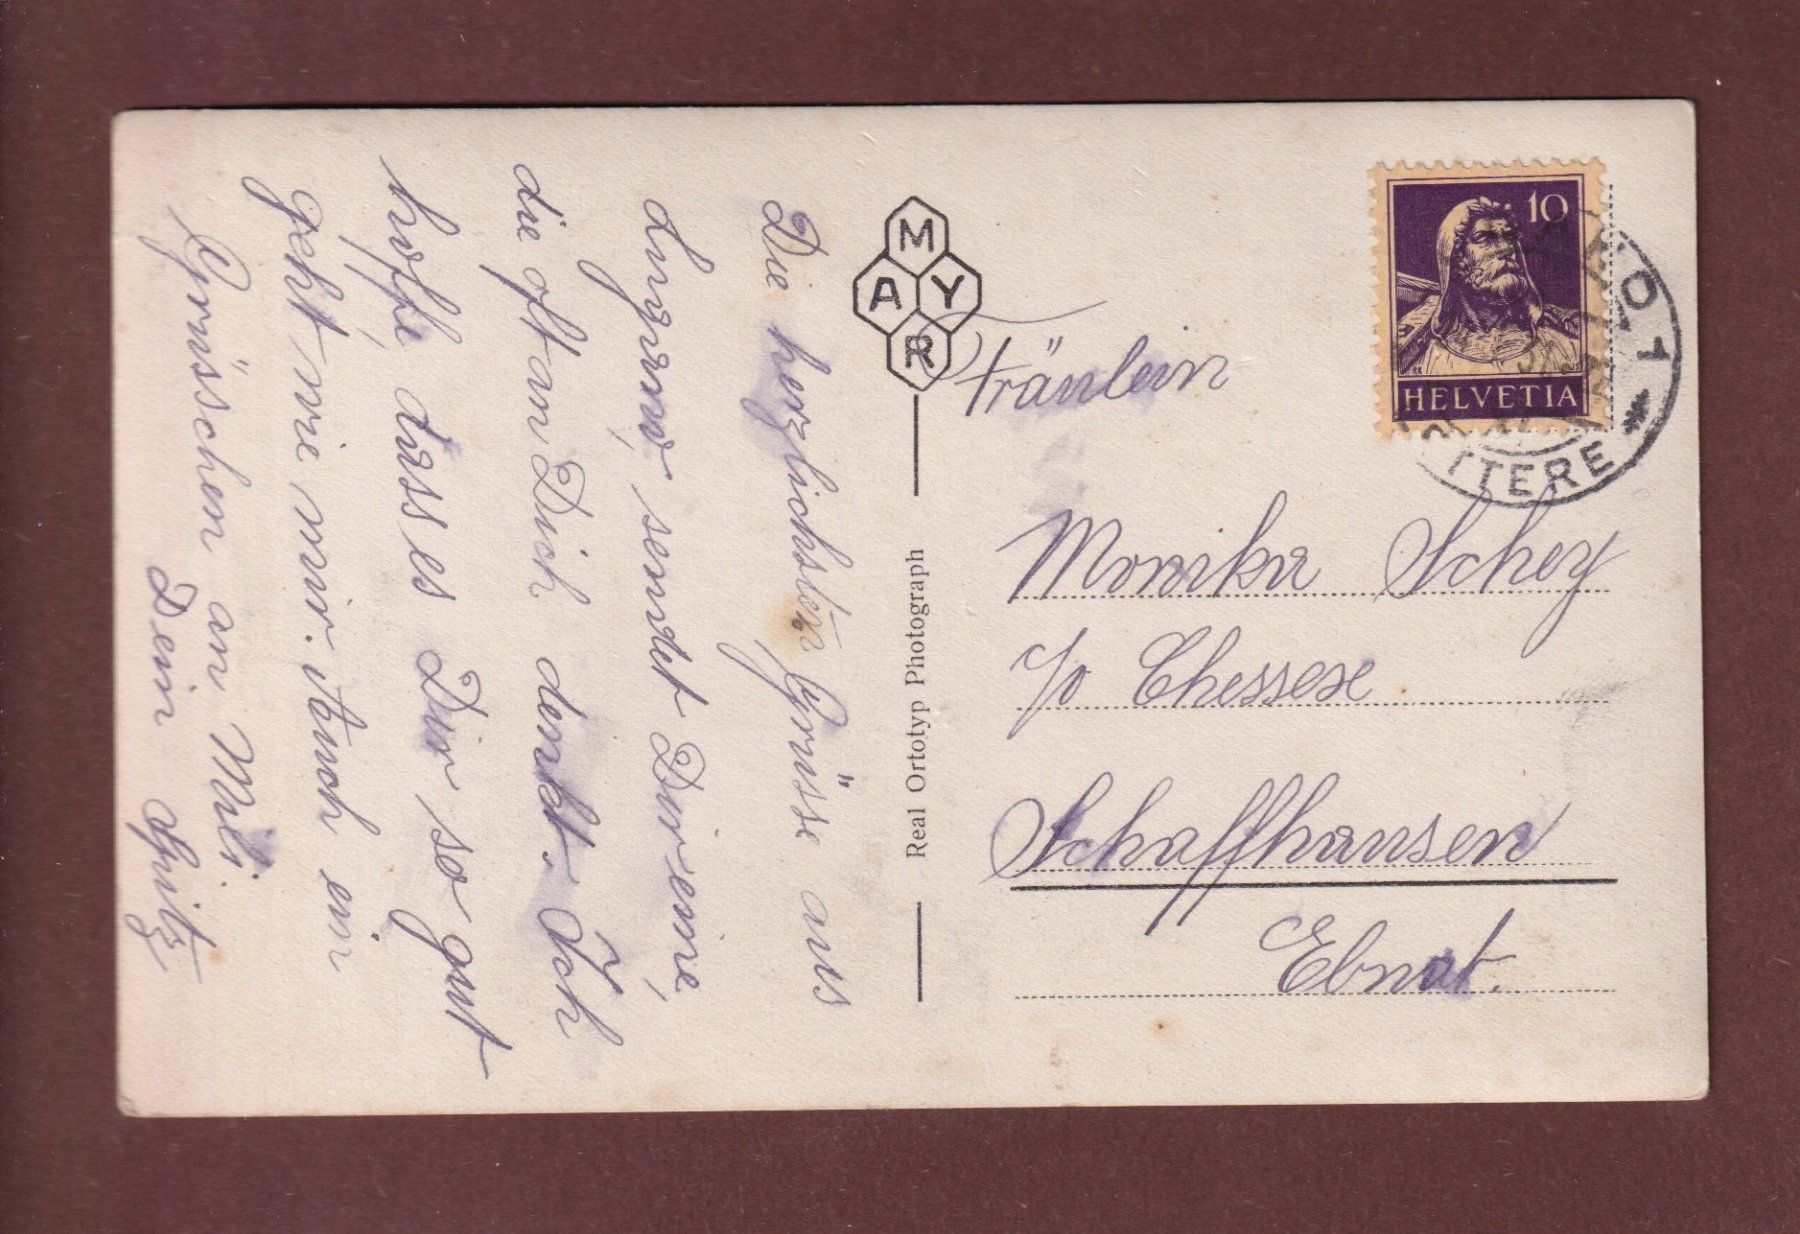 Die herzlichsten Grüsse aus
Lugano, sendet Dir eine,
die oft an Dich denkt. Ich
hoffe, dass es Dir so gut
geht wie mir. Auch ein
Grüsschen an Mili
Dein Spitz
M
A Y
R
Real Ortotyp Photograph
10
HELVETIA
NO 1
LETTERE
Fräulein
Monika Schey
c/o Chessex
Schaffhausen
Ebnat.